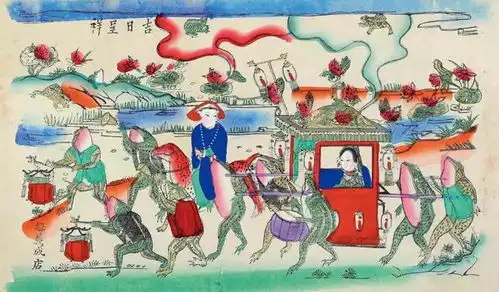 吉日呈祥
成店